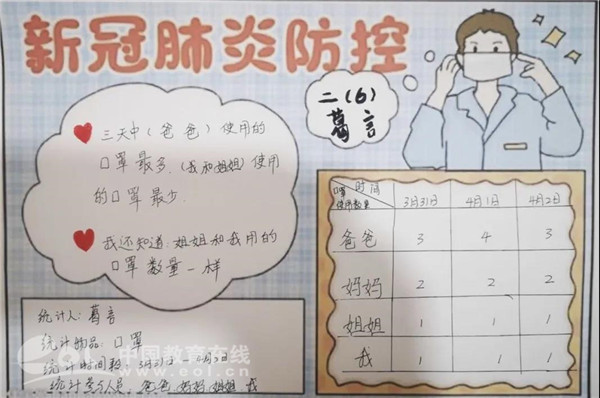 新冠肺炎防控
二(6)
葛言
三天中(爸爸)使用的
口罩最多,(我和姐姐)使用
的口罩最少.
我还知道:姐姐和我用的
口罩数量一样
口罩 时间
使用数量 3月31日 4月1日 4月2日
爸爸 3 4 3
妈妈 2 2 2
姐姐 1 1 1
我 1 1 1
统计人:葛言
统计物品:口罩
统计时间段:3月31日-4月2日
统计若人员:爸爸 妈妈 姐姐 我
eol 中国教育在线
www.eol.cn